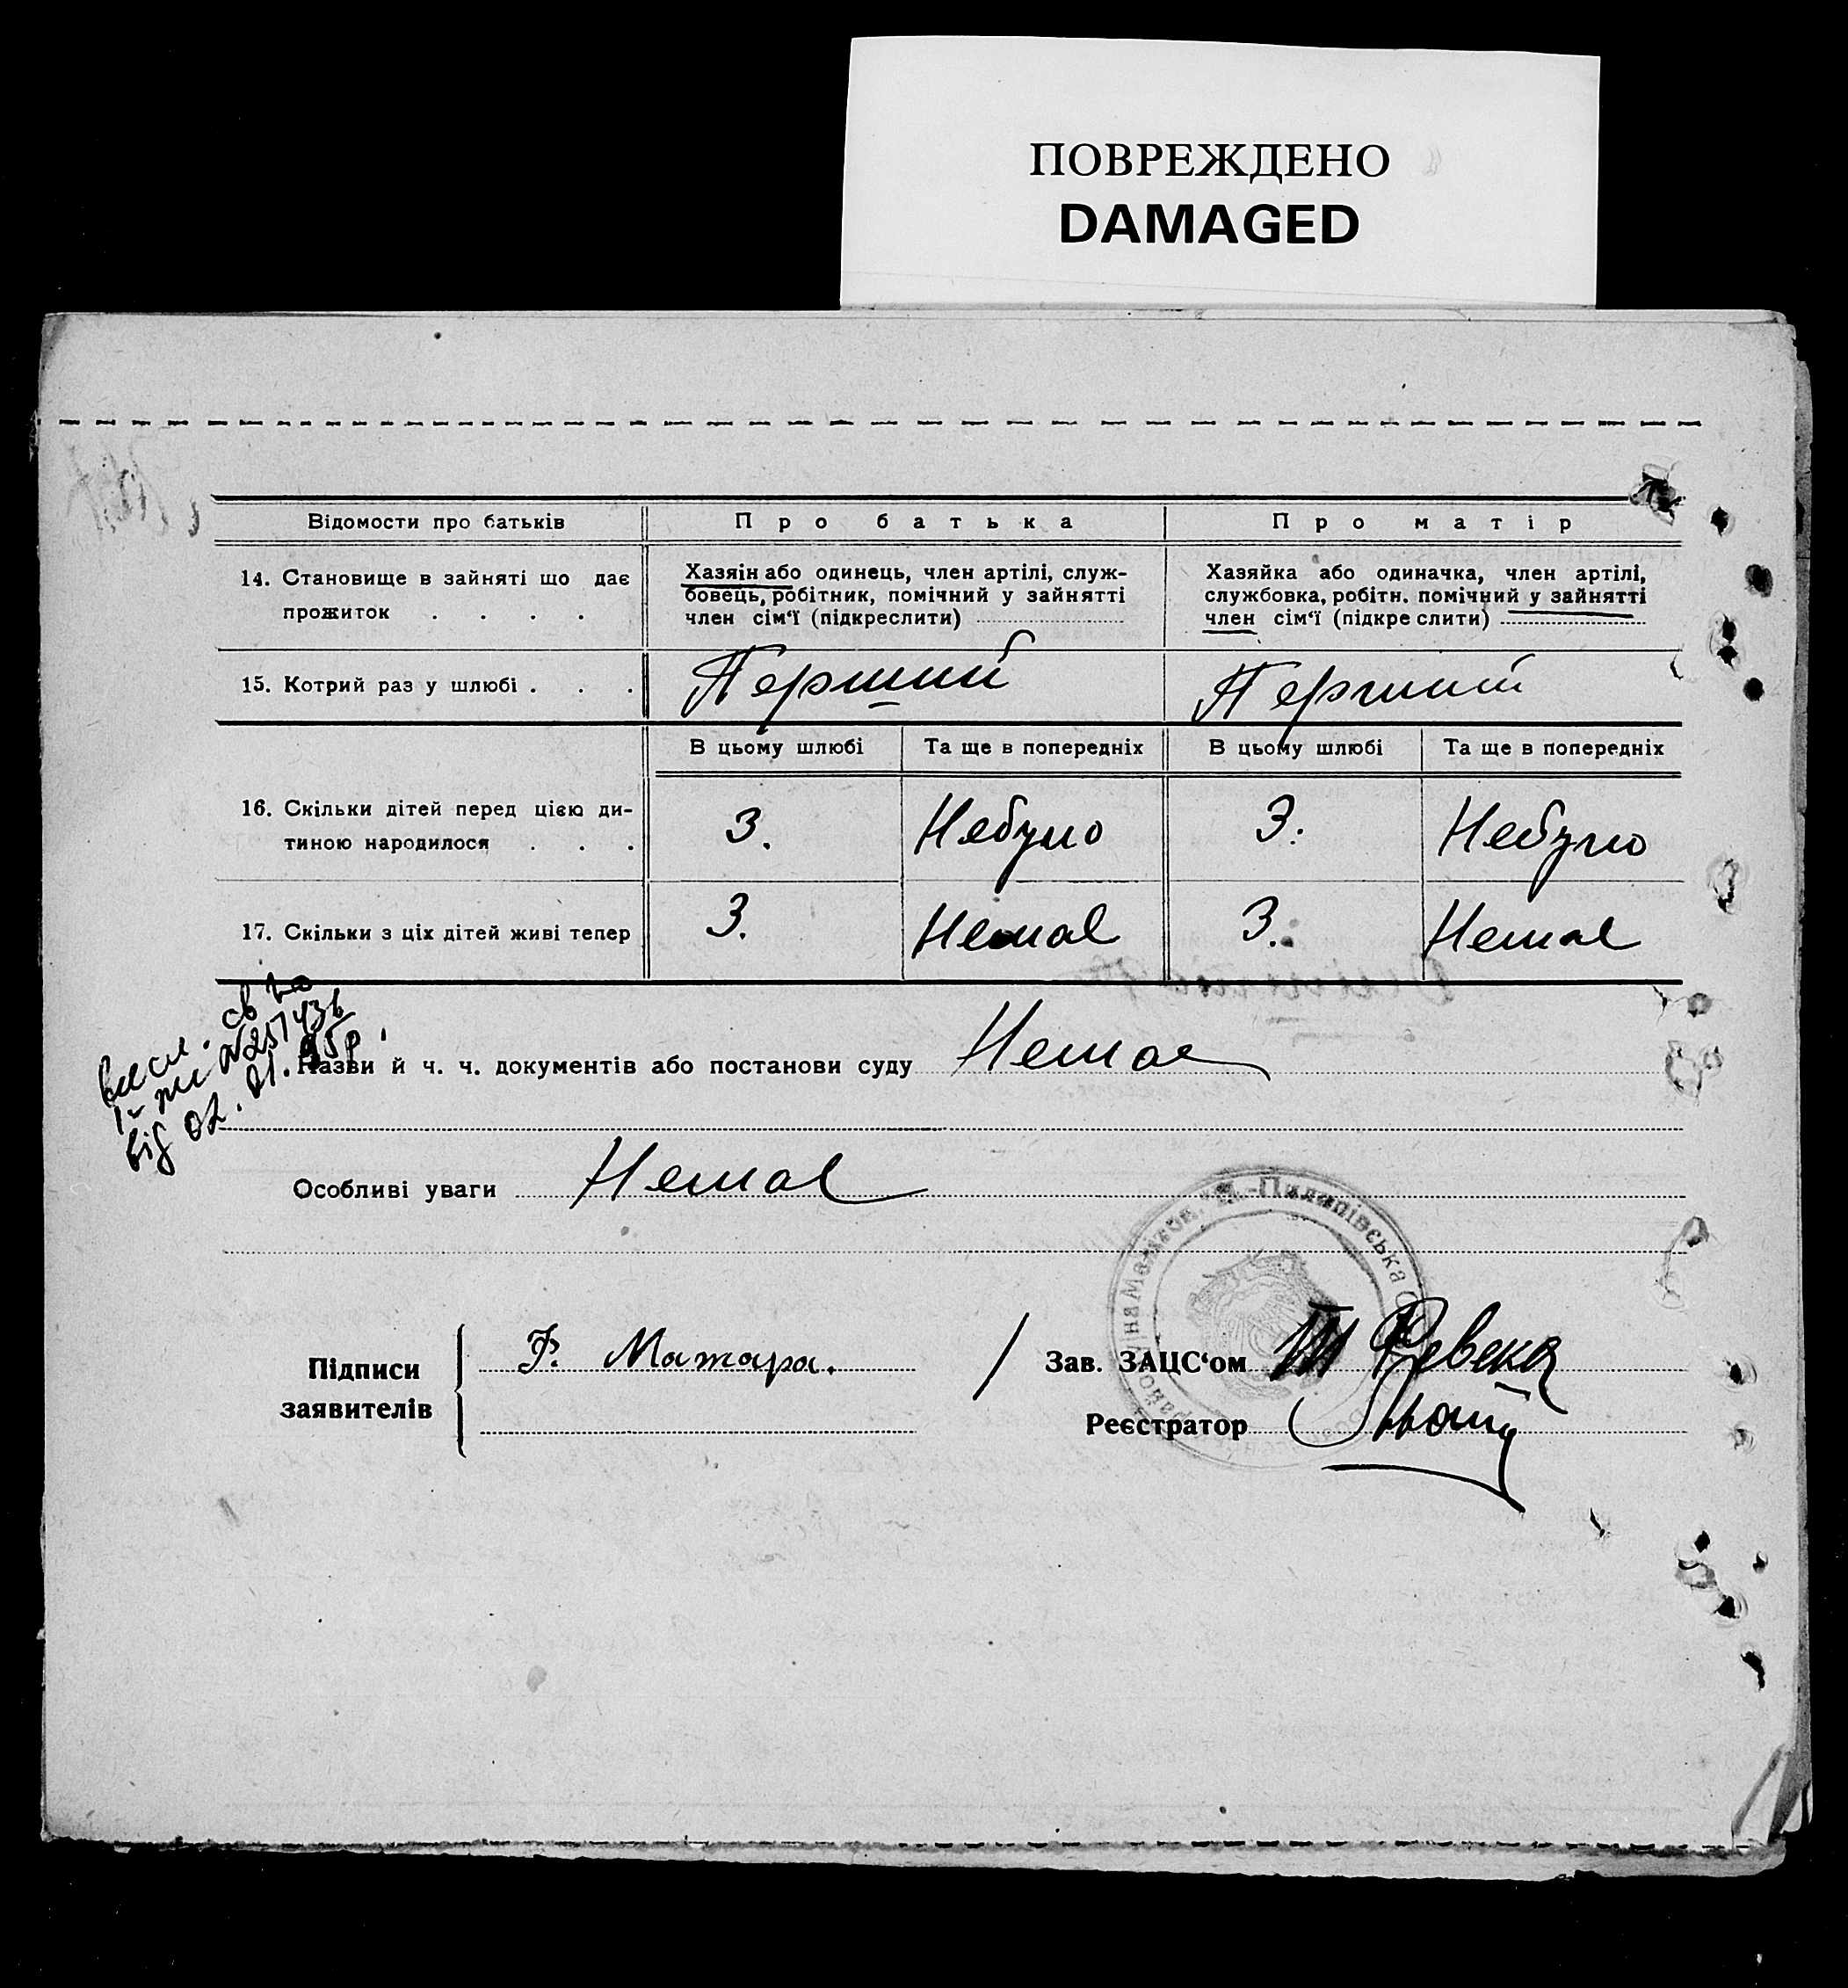 ПОВРЕЖДЕНО
DAMAGED
Відомости про батьків
Про батька
Про матір
14. Становище в зайняті що дає
прожиток . . . .
Хазяін або одинець, член артілі, служ-
бовець, робітник, помічний у зайнятті
член сім‘ї (підкреслити)
Хазяйка або одиначка, член артілі,
службовка, робітн. помічний у зайнятті
член сім‘ї (підкреслити)
15. Котрий раз у шлюбі . . .
Перший
Перший
В цьому шлюбі
Та ще в попередніх
В цьому шлюбі
Та ще в попередніх
16. Скільки дітей перед цією ди-
тиною народилося . . .
3.
Небуло
3.
Небуло
17. Скільки з ціх дітей живі тепер
3.
Немає
3.
Немає
від 02.01.
Назви й ч. ч. документів або постанови суду Немає
Особливі уваги Немає
Пилипівська
Підписи
заявителів
Ф. Матара.
Зав. ЗАЦС‘ом Ревека
Реєстратор